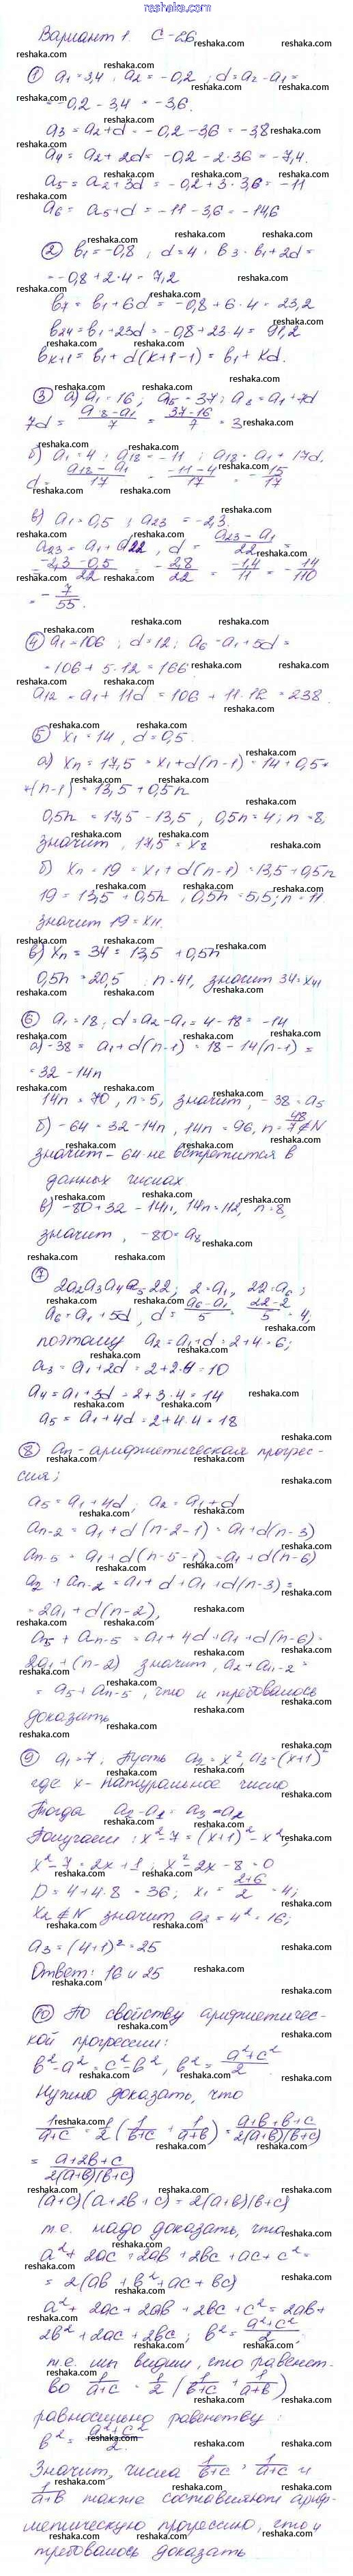 reshaka.com
Вариант 1. С-26
① a₁ = 3,4 ; a₂ = -0,2 ; d = a₂ - a₁ =
= -0,2 - 3,4 = -3,6.
a₃ = a₂ + d = -0,2 - 3,6 = -3,8
a₄ = a₂ + 2d = -0,2 - 2·3,6 = -7,4.
a₅ = a₂ + 3d = -0,2 + 3·3,6 = -11
a₆ = a₅ + d = -11 - 3,6 = -14,6
② b₁ = -0,8 , d = 4 ; b₃ = b₁ + 2d =
= -0,8 + 2·4 = 7,2
b₇ = b₁ + 6d = -0,8 + 6·4 = 23,2
b₂₄ = b₁ + 23d = -0,8 + 23·4 = 91,2
bₖ₊₁ = b₁ + d(k+1-1) = b₁ + kd.
③ а) a₁ = 16 ; a₈ = 37 ; a₈ = a₁ + 7d
7d = (a₈ - a₁)/7 = (37-16)/7 = 3
б) a₁ = 4 ; a₁₈ = -11 ; a₁₈ = a₁ + 17d,
d = (a₁₈ - a₁)/17 = (-11-4)/17 = -15/17
в) a₁ = 0,5 ; a₂₃ = -2,3.
a₂₃ = a₁ + d22 , d = (a₂₃ - a₁)/22 =
= (-2,3-0,5)/22 = -2,8/22 = -1,4/11 = -14/110
= -7/55.
④ a₁ = 106 ; d = 12 ; a₆ = a₁ + 5d =
= 106 + 5·12 = 166
a₁₂ = a₁ + 11d = 106 + 11·12 = 238.
⑤ x₁ = 14 , d = 0,5.
а) xₙ = 17,5 = x₁ + d(n-1) = 14 + 0,5·
·(n-1) = 13,5 + 0,5n
0,5n = 17,5 - 13,5 , 0,5n = 4 ; n = 8,
значит , 17,5 = x₈
б) xₙ = 19 = x₁ + d(n-1) = 13,5 + 0,5n
19 = 13,5 + 0,5n , 0,5n = 5,5 ; n = 11
значит 19 = x₁₁.
в) xₙ = 34 = 13,5 + 0,5n
0,5n = 20,5 n = 41, значит 34 = x₄₁
⑥ a₁ = 18 ; d = a₂ - a₁ = 4 - 18 = -14
а) -38 = a₁ + d(n-1) = 18 - 14(n-1) =
= 32 - 14n
14n = 70 , n = 5, значит , -38 = a₅
б) -64 = 32 - 14n , 14n = 96, n = 48/7 ∉ N
значит -64 не встретится в
данных числах
в) -80 = 32 - 14n, 14n = 112, n = 8,
значит , -80 = a₈
⑦ 2a₂a₃a₄a₅22 ; 2 = a₁, 22 = a₆ ;
a₆ = a₁ + 5d , d = (a₆ - a₁)/5 = (22-2)/5 = 4,
поэтому a₂ = a₁ + d = 2 + 4 = 6;
a₃ = a₁ + 2d = 2 + 2·4 = 10
a₄ = a₁ + 3d = 2 + 3·4 = 14
a₅ = a₁ + 4d = 2 + 4·4 = 18
⑧ aₙ - арифметическая прогрес-
сия;
a₅ = a₁ + 4d ; a₂ = a₁ + d
aₙ₋₂ = a₁ + d(n-2-1) = a₁ + d(n-3)
aₙ₋₅ = a₁ + d(n-5-1) = a₁ + d(n-6)
a₂ + aₙ₋₂ = a₁ + d + a₁ + d(n-3) =
= 2a₁ + d(n-2),
a₅ + aₙ₋₅ = a₁ + 4d + a₁ + d(n-6) =
2a₁ + (n-2) значит , a₂ + aₙ₋₂ =
= a₅ + aₙ₋₅ , что и требовалось
доказать
⑨ a₁ = 7. Пусть a₂ = x², a₃ = (x+1)²
где x - натуральное число
Тогда a₂ - a₁ = a₃ - a₂
Получаем : x² - 7 = (x+1)² - x²,
x² - 7 = 2x + 1, x² - 2x - 8 = 0
D = 4 + 4·8 = 36, x₁ = (2+6)/2 = 4;
x₂ ∉ N значит a₂ = 4² = 16;
a₃ = (4+1)² = 25
Ответ: 16 и 25
⑩ По свойству арифметичес-
кой прогрессии:
b² - a² = c² - b² , b² = (a²+c²)/2
Нужно доказать, что
1/(a+c) = 1/2 (1/(b+c) + 1/(a+b)) = (a+b+b+c)/(2(a+b)(b+c))
= (a+2b+c)/(2(a+b)(b+c))
(a+c)(a+2b+c) = 2(a+b)(b+c)
т.е. надо доказать, что
a² + 2ac + 2ab + 2bc + ac + c² =
= 2(ab + b² + ac + bc)
a² + 2ac + 2ab + 2bc + c² = 2ab +
2b² + 2ac + 2bc ; b² = (a²+c²)/2 ;
т.е. мы видим, что равенст-
во 1/(a+c) = 1/2 (1/(b+c) + 1/(a+b))
равносильно равенству :
b² = (a²+c²)/2.
Значит, числа 1/(b+c) , 1/(a+c) и
1/(a+b) также составляют ариф-
метическую прогрессию, что и
требовалось доказать